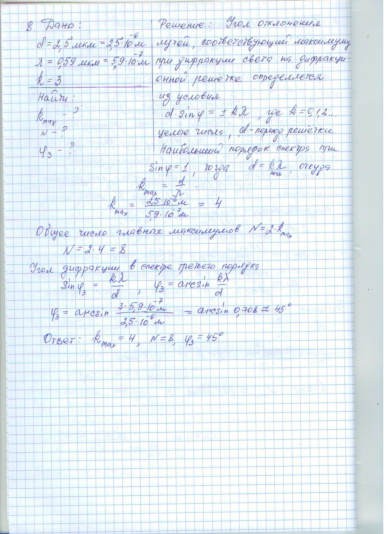 8 Дано:
d = 2,5 мкм = 2,5·10⁻⁶ м
λ = 0,59 мкм = 5,9·10⁻⁷ м
k = 3
Найти:
k max - ?
N - ?
φ₃ - ?
Решение: Угол отклонения
лучей, соответствующий максимуму
при дифракции света на дифракци
онной решетке определяется
из условия
d sin φ = ± kλ, где k = 0,1,2..
целое число, d - период решетки
Наибольший порядок спектра при
sin φ = 1, тогда d = kλ max, откуда
k max = d/λ
k max = 2,5·10⁻⁶ м / 5,9·10⁻⁷ м = 4
Общее число главных максимумов N = 2·k max
N = 2·4 = 8
Угол дифракции в спектре третьего порядка
sin φ₃ = kλ/d, φ₃ = arcsin kλ/d
φ₃ = arcsin 3·5,9·10⁻⁷ м / 2,5·10⁻⁶ м = arcsin 0,708 ≈ 45°
Ответ: k max = 4, N = 8, φ₃ = 45°